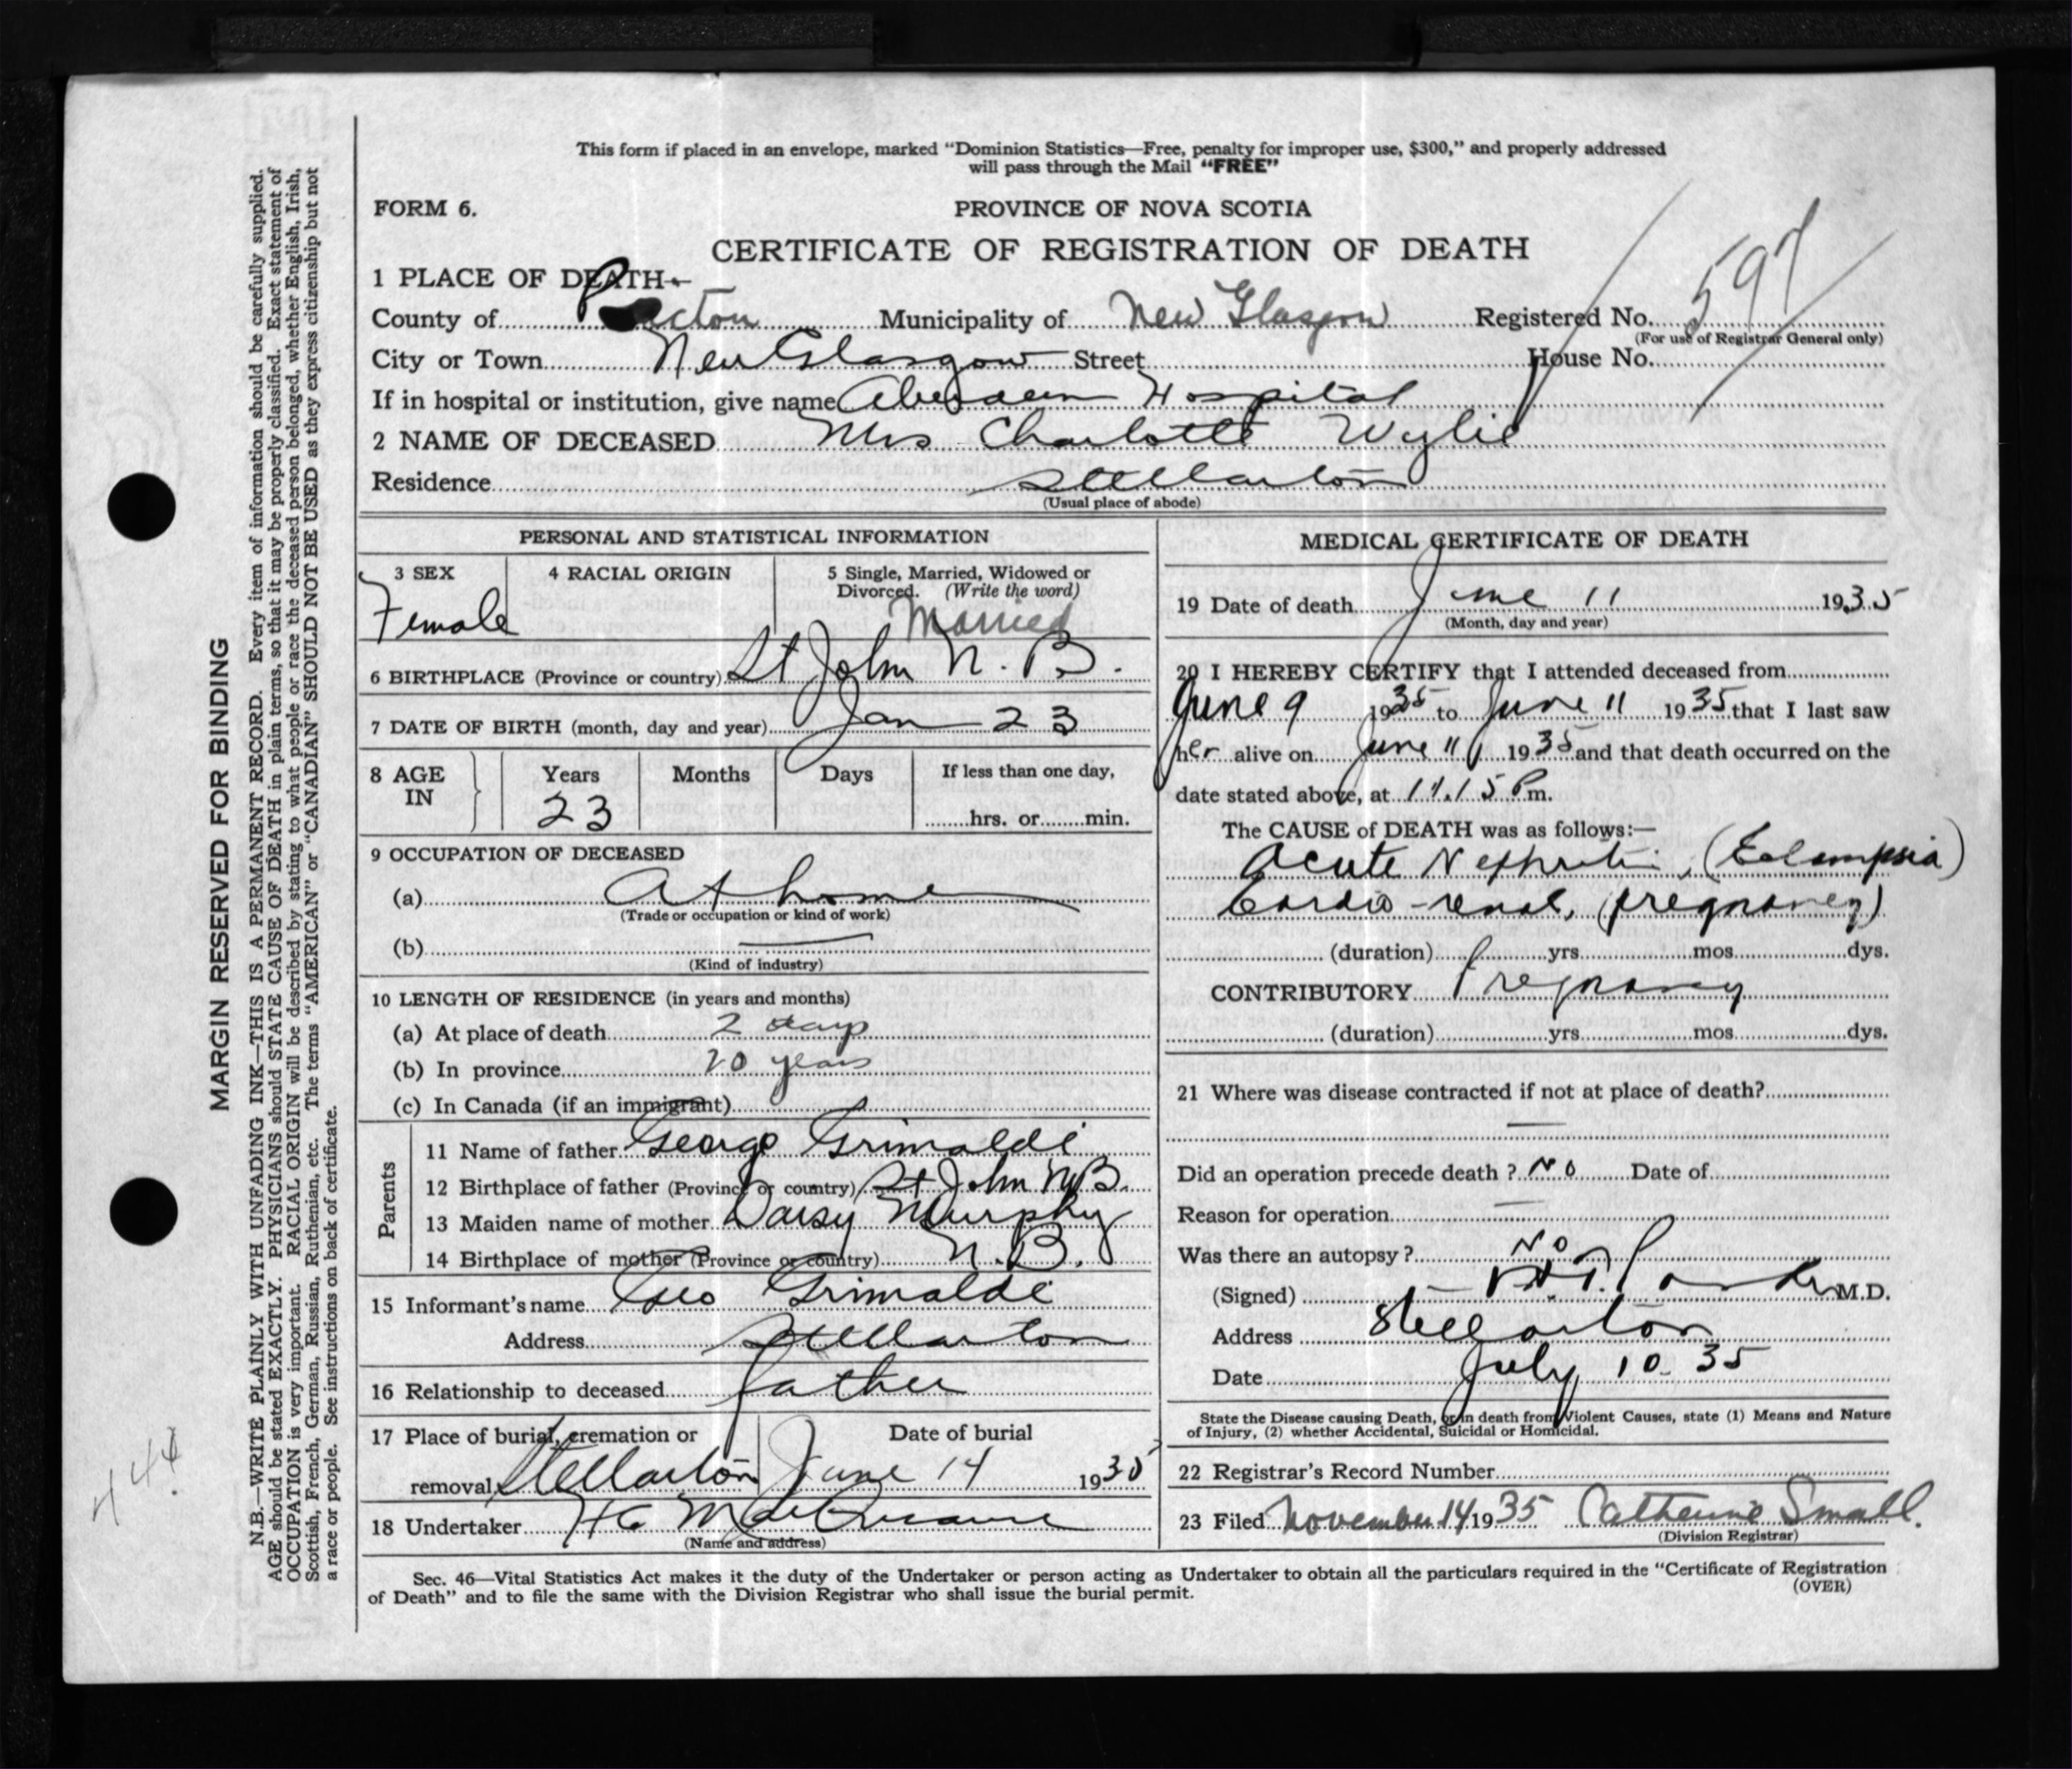 This form if placed in an envelope, marked "Dominion Statistics—Free, penalty for improper use, $300," and properly addressed
will pass through the Mail "FREE"
FORM 6.
PROVINCE OF NOVA SCOTIA
CERTIFICATE OF REGISTRATION OF DEATH
1 PLACE OF DEATH—
County of Pictou Municipality of New Glasgow Registered No. 597
(For use of Registrar General only)
City or Town New Glasgow Street House No.
If in hospital or institution, give name Aberdeen Hospital
2 NAME OF DECEASED Mrs Charlotte Wylie
Residence Stellarton
(Usual place of abode)
PERSONAL AND STATISTICAL INFORMATION
3 SEX 4 RACIAL ORIGIN 5 Single, Married, Widowed or
Divorced. (Write the word)
Female Married
6 BIRTHPLACE (Province or country) St John N. B.
7 DATE OF BIRTH (month, day and year) Jan 23
8 AGE Years Months Days If less than one day,
IN 23 hrs. or min.
9 OCCUPATION OF DECEASED
(a) At home
(Trade or occupation or kind of work)
(b)
(Kind of industry)
10 LENGTH OF RESIDENCE (in years and months)
(a) At place of death 2 days
(b) In province 20 years
(c) In Canada (if an immigrant)
Parents
11 Name of father George Grimaldi
12 Birthplace of father (Province or country) St John N.B.
13 Maiden name of mother Daisy Murphy
14 Birthplace of mother (Province or country) N.B.
15 Informant's name Geo Grimaldi
Address Stellarton
16 Relationship to deceased father
17 Place of burial, cremation or Date of burial
removal Stellarton June 14 1935
18 Undertaker
(Name and address)
MEDICAL CERTIFICATE OF DEATH
19 Date of death June 11 1935
(Month, day and year)
20 I HEREBY CERTIFY that I attended deceased from
June 9 1935 to June 11 1935 that I last saw
her alive on June 11 1935 and that death occurred on the
date stated above, at 11.15 P m.
The CAUSE of DEATH was as follows:—
Acute Nephritis, (Eclampsia)
Cardio-renal, (pregnancy)
(duration) yrs. mos. dys.
CONTRIBUTORY Pregnancy
(duration) yrs. mos. dys.
21 Where was disease contracted if not at place of death?
Did an operation precede death? No Date of
Reason for operation
Was there an autopsy? No
(Signed) M.D.
Address Stellarton
Date July 10 35
State the Disease causing Death, or in death from Violent Causes, state (1) Means and Nature
of Injury, (2) whether Accidental, Suicidal or Homicidal.
22 Registrar's Record Number
23 Filed November 14 1935 Catherine Small.
(Division Registrar)
Sec. 46—Vital Statistics Act makes it the duty of the Undertaker or person acting as Undertaker to obtain all the particulars required in the "Certificate of Registration
of Death" and to file the same with the Division Registrar who shall issue the burial permit. (OVER)
MARGIN RESERVED FOR BINDING
N.B.—WRITE PLAINLY WITH UNFADING INK—THIS IS A PERMANENT RECORD. Every item of information should be carefully supplied.
AGE should be stated EXACTLY. PHYSICIANS should STATE CAUSE OF DEATH in plain terms, so that it may be properly classified. Exact statement of
OCCUPATION is very important. RACIAL ORIGIN will be described by stating to what people or race the deceased person belonged, whether English, Irish,
Scottish, French, German, Russian, Ruthenian, etc. The terms "AMERICAN" or "CANADIAN" SHOULD NOT BE USED as they express citizenship but not
a race or people. See instructions on back of certificate.